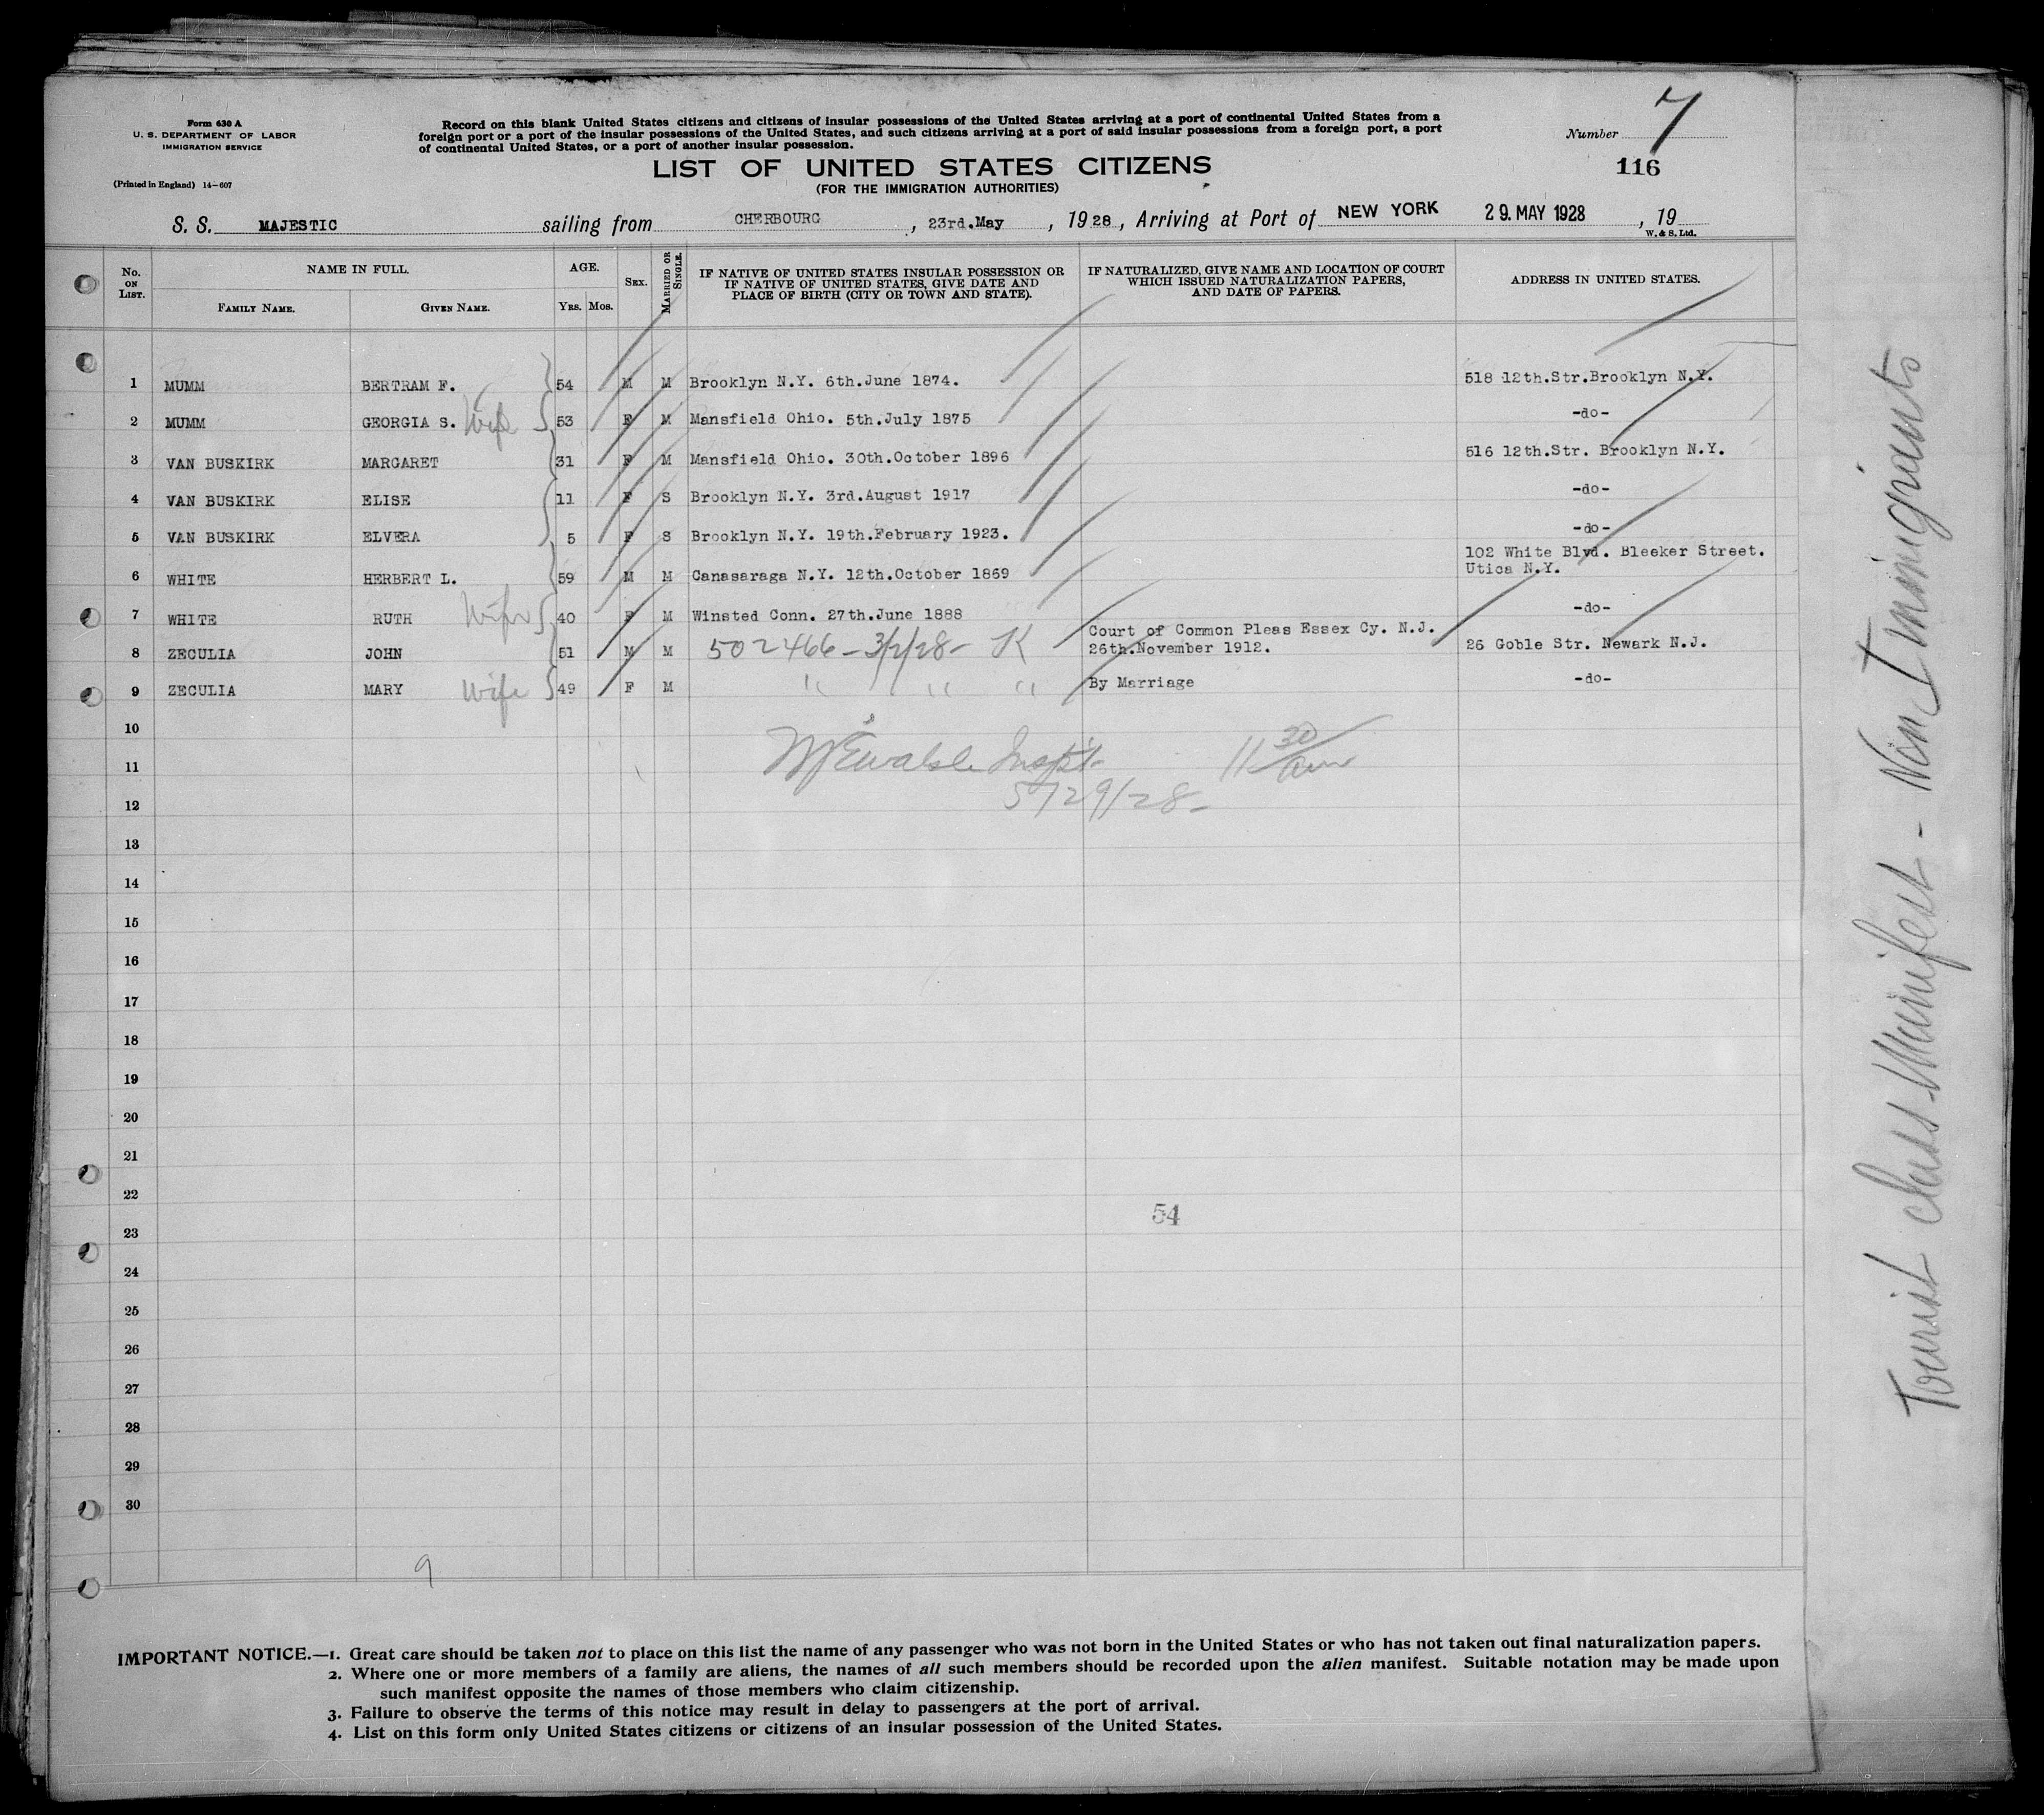 Form 630 A
U. S. DEPARTMENT OF LABOR
IMMIGRATION SERVICE
(Printed in England) 14-607
Record on this blank United States citizens and citizens of insular possessions of the United States arriving at a port of continental United States from a
foreign port or a port of the insular possessions of the United States, and such citizens arriving at a port of said insular possessions from a foreign port, a port
of continental United States, or a port of another insular possession.
Number 7
116
LIST OF UNITED STATES CITIZENS
(FOR THE IMMIGRATION AUTHORITIES)
S. S. MAJESTIC sailing from CHERBOURG, 23rd.May, 1928, Arriving at Port of NEW YORK 29. MAY 1928, 19
W. & S. Ltd.
No. ON LIST. NAME IN FULL. FAMILY NAME. GIVEN NAME. AGE. YRS. MOS. SEX. MARRIED OR SINGLE. IF NATIVE OF UNITED STATES INSULAR POSSESSION OR IF NATIVE OF UNITED STATES, GIVE DATE AND PLACE OF BIRTH (CITY OR TOWN AND STATE). IF NATURALIZED, GIVE NAME AND LOCATION OF COURT WHICH ISSUED NATURALIZATION PAPERS, AND DATE OF PAPERS. ADDRESS IN UNITED STATES.
1 MUMM BERTRAM F. 54 M M Brooklyn N.Y. 6th.June 1874. 518 12th.Str.Brooklyn N.Y.
2 MUMM GEORGIA S. Wife 53 F M Mansfield Ohio. 5th.July 1875 -do-
3 VAN BUSKIRK MARGARET 31 F M Mansfield Ohio. 30th.October 1896 516 12th.Str. Brooklyn N.Y.
4 VAN BUSKIRK ELISE 11 F S Brooklyn N.Y. 3rd.August 1917 -do-
5 VAN BUSKIRK ELVERA 5 F S Brooklyn N.Y. 19th.February 1923. -do-
6 WHITE HERBERT L. 59 M M Canasaraga N.Y. 12th.October 1869 102 White Blvd. Bleeker Street. Utica N.Y.
7 WHITE RUTH Wife 40 F M Winsted Conn. 27th.June 1888 -do-
8 ZECULIA JOHN 51 M M 502466 - 3/2/28 - K Court of Common Pleas Essex Cy. N.J. 26th.November 1912. 26 Goble Str. Newark N.J.
9 ZECULIA MARY Wife 49 F M " " " By Marriage -do-
10
11 Insptr. 11 30/am
12 5/29/28-
13
14
15
16
17
18
19
20
21
22
54
23
24
25
26
27
28
29
30
9
IMPORTANT NOTICE.—1. Great care should be taken not to place on this list the name of any passenger who was not born in the United States or who has not taken out final naturalization papers.
2. Where one or more members of a family are aliens, the names of all such members should be recorded upon the alien manifest. Suitable notation may be made upon
such manifest opposite the names of those members who claim citizenship.
3. Failure to observe the terms of this notice may result in delay to passengers at the port of arrival.
4. List on this form only United States citizens or citizens of an insular possession of the United States.
Tourist Class Manifest - Non Immigrants